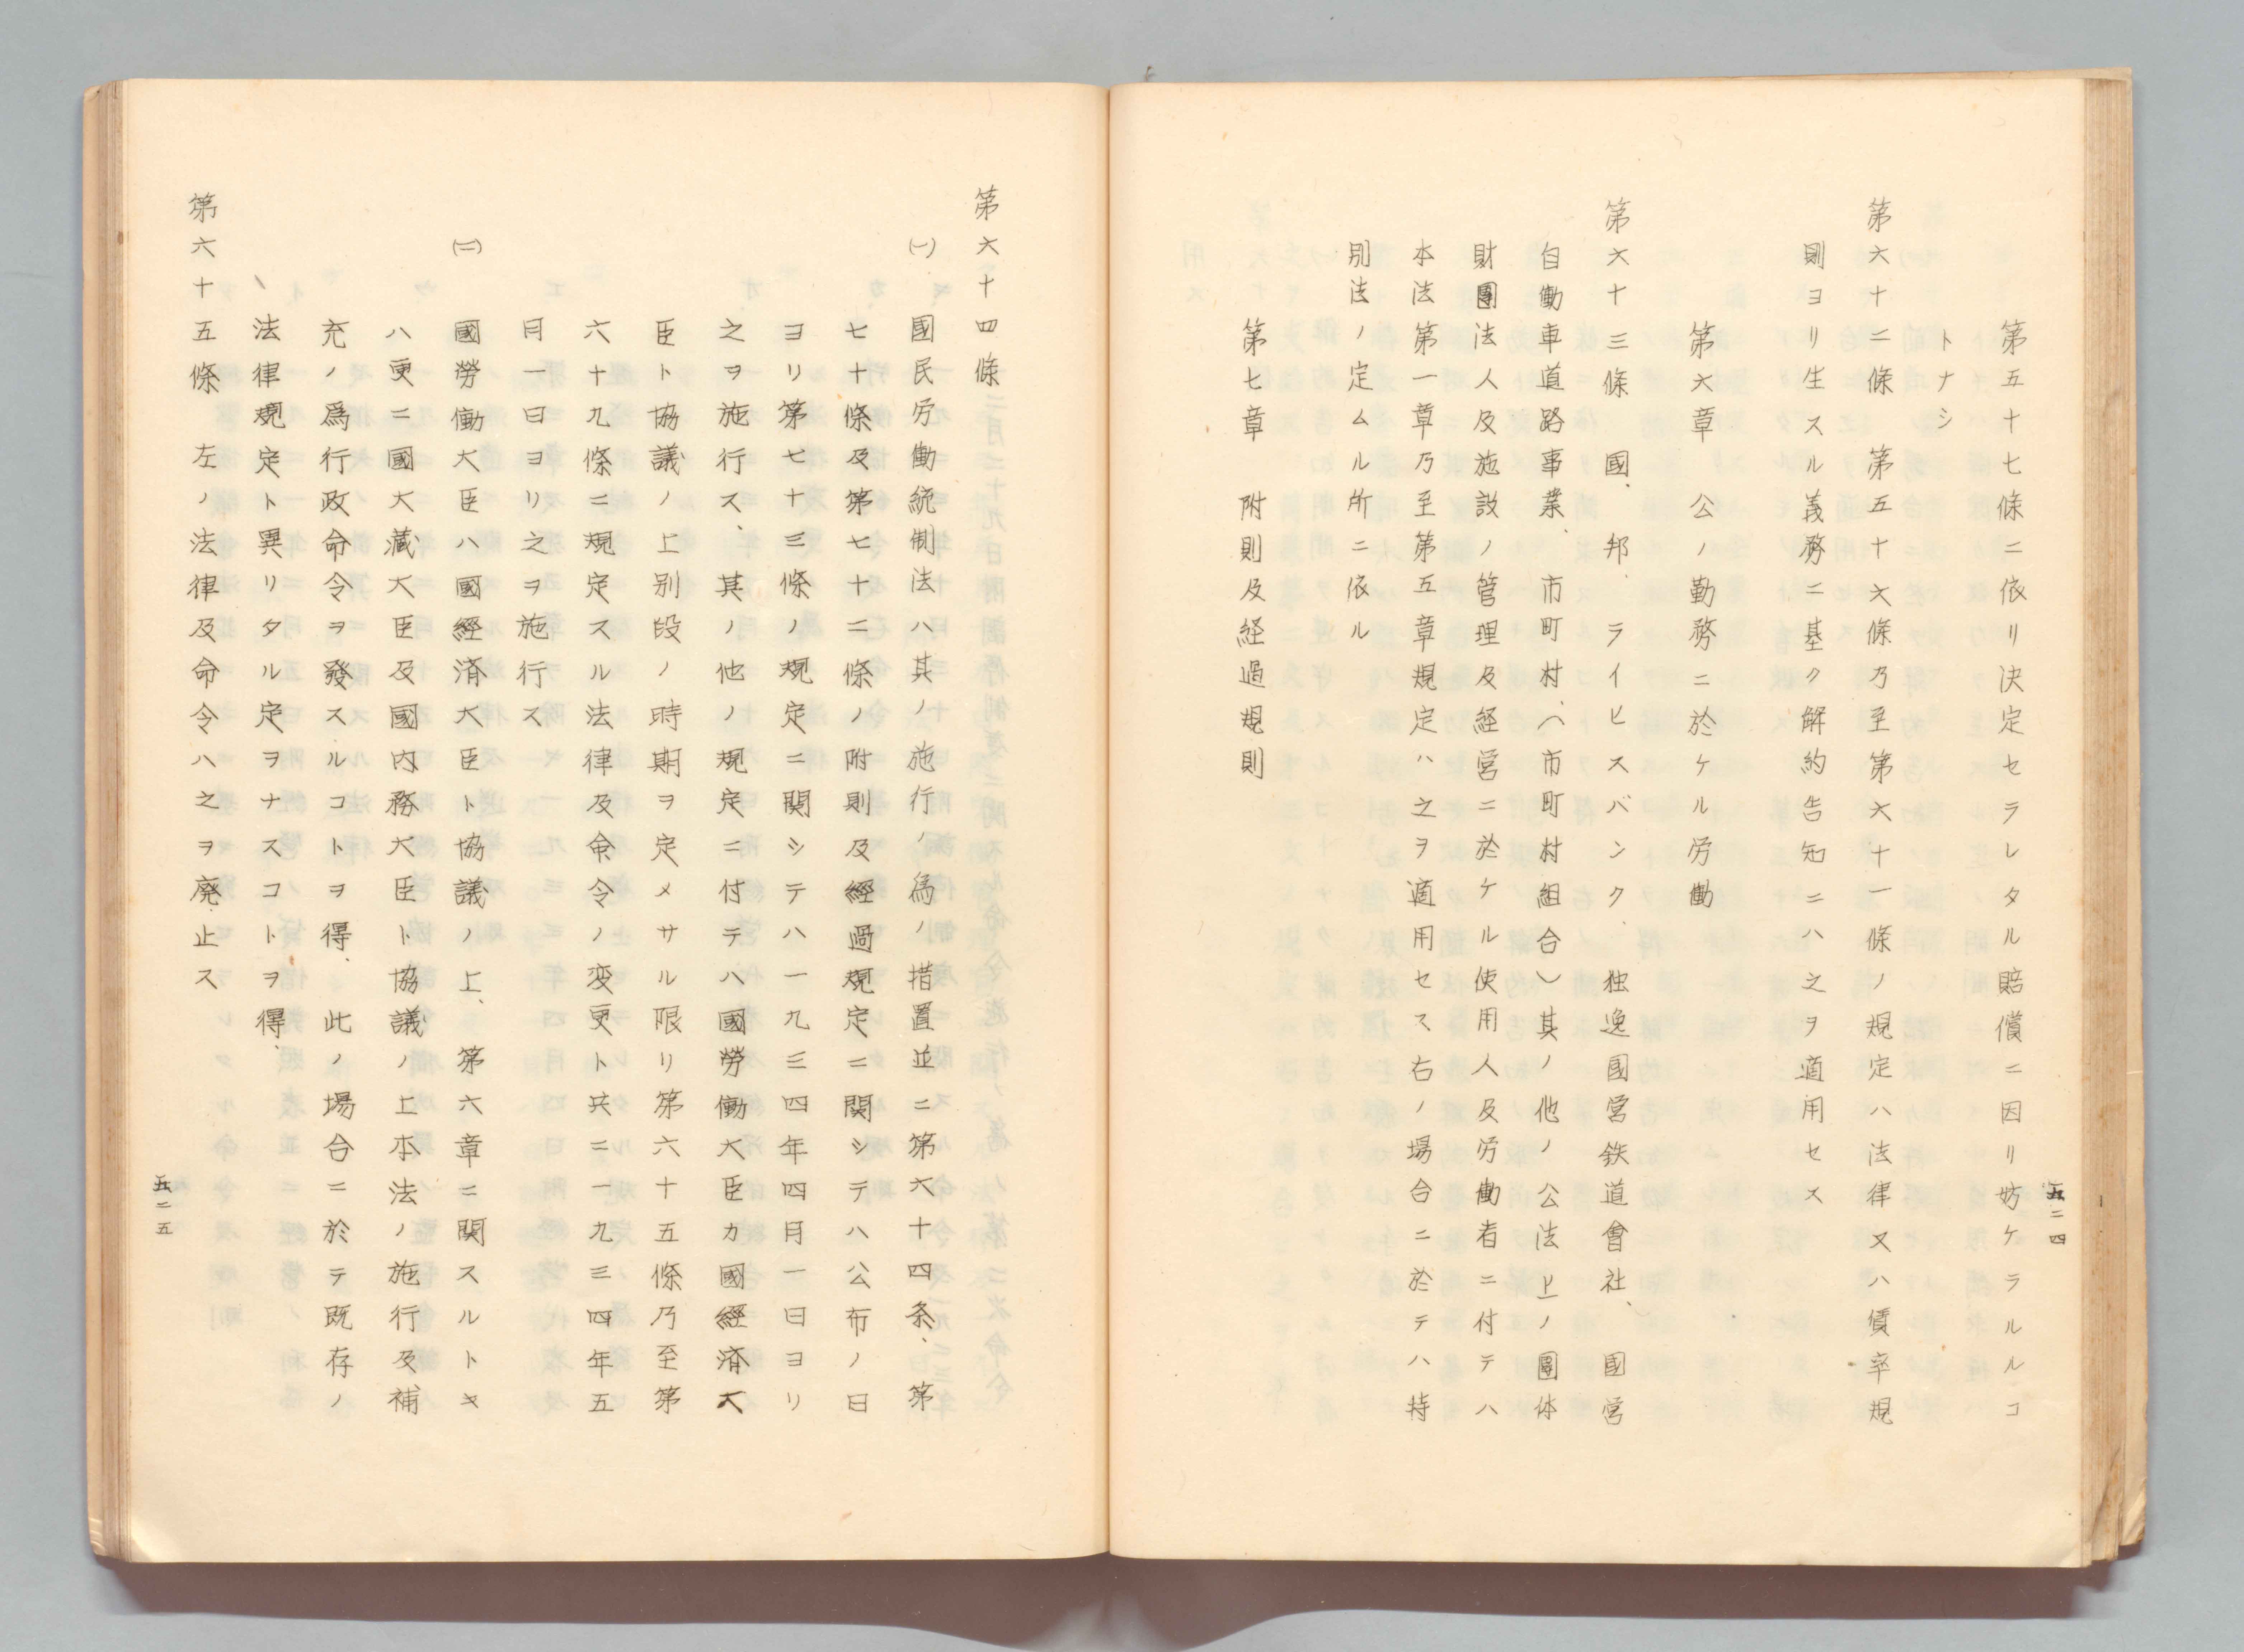 第五十七條ニ依リ決定セラレタル賠償ニ因リ妨ケラルルコ
トナシ
第六十二條　第五十六條乃至第六十一條ノ規定ハ法律又ハ賃率規
則ヨリ生スル義務ニ基ク解約告知ニハ之ヲ適用セス
第六章　公ノ勤務ニ於ケル労働
第六十三條　國、邦、ライヒスバンク、独逸國営鉄道會社、國営
自働車道路事業、市町村、（市町村組合）其ノ他ノ公法上ノ團体
財團法人及施設ノ管理及経営ニ於ケル使用人及労働者ニ付テハ
本法第一章乃至第五章規定ハ之ヲ適用セス右ノ場合ニ於テハ特
別法ノ定ムル所ニ依ル
第七章　附則及経過規則
五二四
第六十四條
㈠　國民労働統制法ハ其ノ施行ノ為ノ措置並ニ第六十四条、第
七十條及第七十二條ノ附則及經過規定ニ関シテハ公布ノ日
ヨリ第七十三條ノ規定ニ関シテハ一九三四年四月一日ヨリ
之ヲ施行ス、其ノ他ノ規定ニ付テハ國勞働大臣カ國經済大
臣ト協議ノ上別段ノ時期ヲ定メサル限リ第六十五條乃至第
六十九條ニ規定スル法律及命令ノ変更ト共ニ一九三四年五
月一日ヨリ之ヲ施行ス
㈡　國勞働大臣ハ國經済大臣ト協議ノ上、第六章ニ関スルトキ
ハ更ニ國大藏大臣及國内務大臣ト協議ノ上本法ノ施行及補
充ノ爲行政命令ヲ發スルコトヲ得、此ノ場合ニ於テ既存ノ
法律規定ト異リタル定ヲナスコトヲ得、
第六十五條　左ノ法律及命令ハ之ヲ廃止ス
五二五